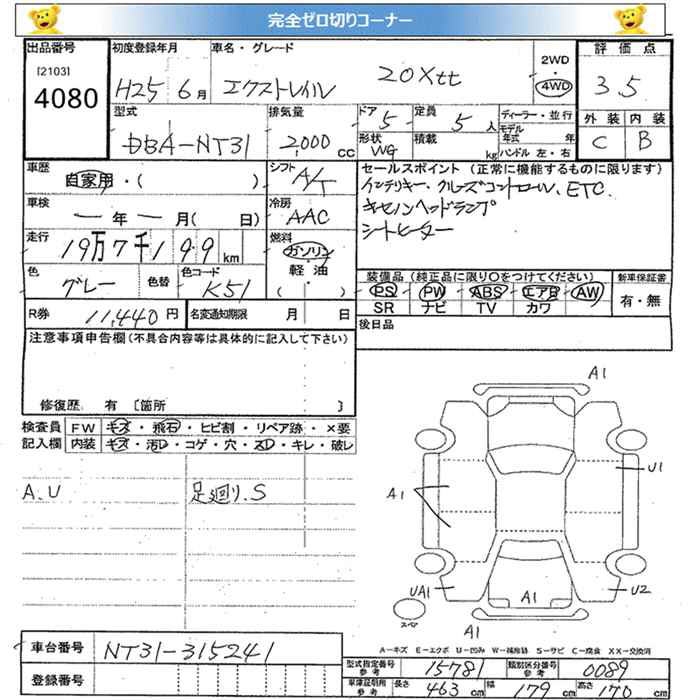 完全ゼロ切りコーナー
出品番号
[2103]
4080
初度登録年月
H25 6月
車名・グレード
エクストレイル 20Xtt
2WD
・
4WD
評価点
3.5
外装 内装
C B
型式
DBA-NT31
排気量
2,000 cc
ドア
5
形状
WG
定員
5 人
積載
kg
ディーラー・並行
モデル年式 年
ハンドル 左・右
車歴
自家用・( )
シフト
A/T
車検
一 年 一 月( 日)
冷房
AAC
走行
19万7千199 km
燃料
ガソリン
軽油
( )
色
グレー
色替
色コード
K51
セールスポイント(正常に機能するものに限ります)
インテリキー、クルーズコントロール、ETC、
キセノンヘッドランプ
シートヒーター
装備品(純正品に限り○をつけてください)
PS PW ABS エアB AW
SR ナビ TV カワ
新車保証書
有・無
R券
11,440円
名変通知期限 月 日
後日品
注意事項申告欄(不具合内容等は具体的に記入して下さい)
修復歴 有 〔箇所 〕
検査員記入欄
FW キズ・飛石・ヒビ割・リペア跡・×要
内装 キズ・汚レ・コゲ・穴・スレ・キレ・破レ
A.U
足廻り.S
A1
U1
A1
UA1
A1
U2
スペア
A1
A-キズ E-エクボ U-凹み W-補修跡 S-サビ C-腐食 XX-交換済
車台番号
NT31-315241
登録番号
型式指定番号参考
15781
類別区分番号参考
0089
車庫証明用参考
長さ 463cm 幅 179cm 高さ 170cm